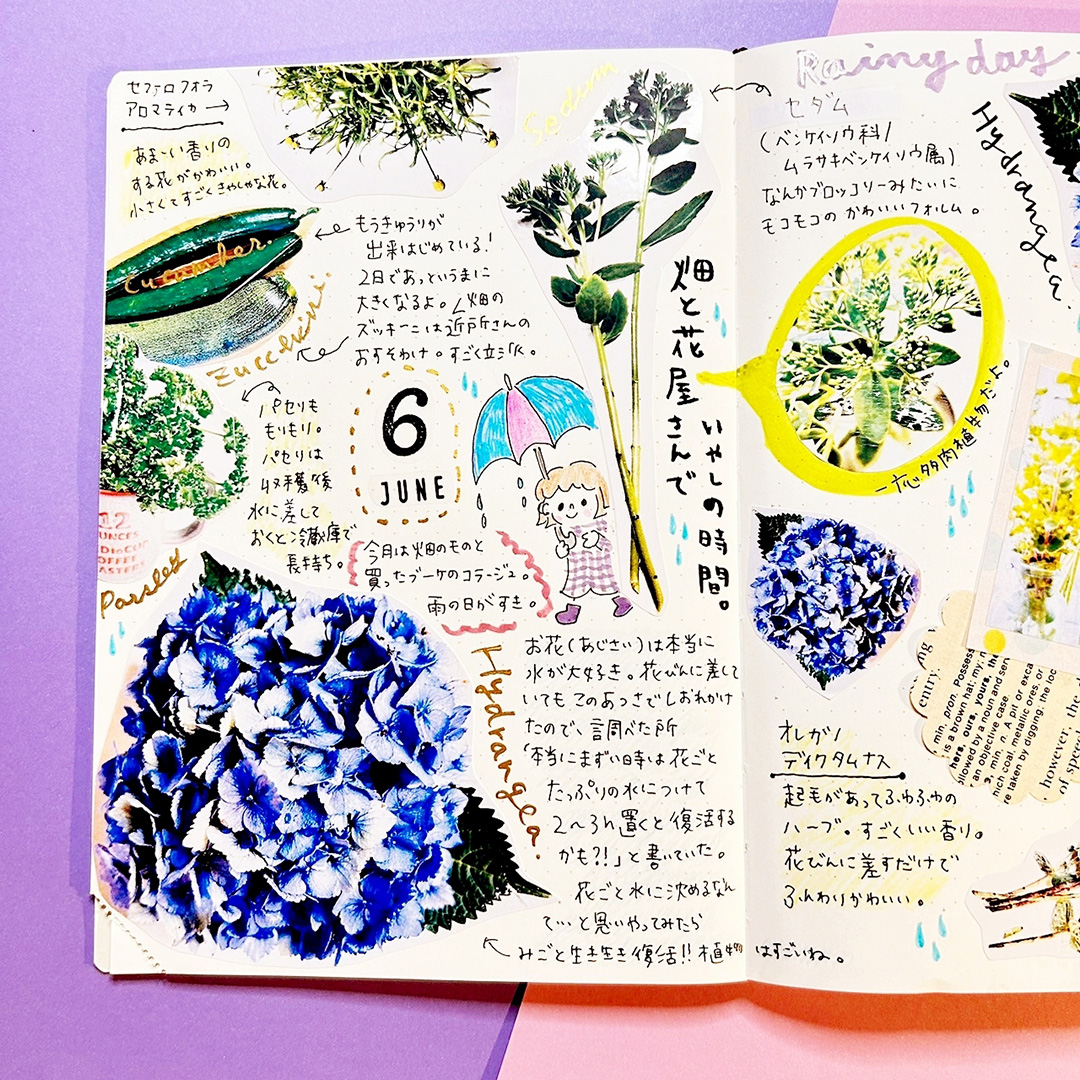 セファロフォラ
アロマティカ→
あま〜い香りの
する花がかわいい。
小さくてすごくきゃしゃな花。
Cucumber.
もうきゅうりが
出来はじめている!
2日であっというまに
大きくなるよ。畑の
ズッキーニは近所さんの
おすそわけ。すごく立派。
Zucchini
パセリも
もりもり。
パセリは
収穫後
水に差して
おくと冷蔵庫で
長持ち。
12
OUNCES
COFFEE
Parsley
6
JUNE
今月は畑のものと
買ったブーケのコラージュ。
雨の日がすき。
Sedum
畑と花屋さんで
いやしの時間。
Hydrangea.
お花(あじさい)は本当に
水が大好き。花びんに差して
いてもこのあつさでしおれかけ
たので、調べた所
「本当にまずい時は花ごと
たっぷりの水につけて
2〜3h置くと復活する
かも?!」と書いていた。
花ごと水に沈めるなん
て…と思いやってみたら
みごと生き生き復活!!植物はすごいね。
Rainy day
セダム
(ベンケイソウ科/
ムラサキベンケイソウ属)
なんかブロッコリーみたいに
モコモコのかわいいフォルム。
一応多肉植物だよ。
Hydrangea.
オレガノ
ディクタムナス
起毛があってふわふわの
ハーブ。すごくいい香り。
花びんに差すだけで
ふんわりかわいい。
entry.
min, pron. Possess
is a brown hat; my
hers, ours, yours, the
llowed by a noun and
an objective case.
3, min, n. A pit or exca
hich coal, metallic ores, or
re taken by digging, the loc
however, the
of speed